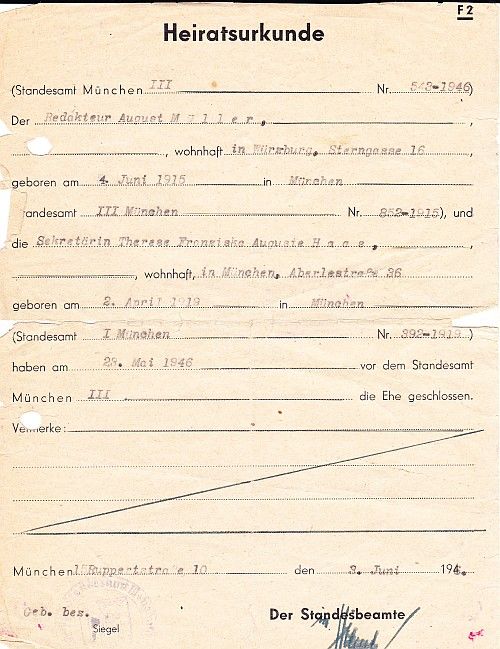 F 2
Heiratsurkunde
(Standesamt München III Nr. 542-1946)
Der Redakteur August Müller,
, wohnhaft in Würzburg, Sterngasse 16
geboren am 4. Juni 1915 in München
tandesamt III München Nr. 852-1915), und
die Sekretärin Therese Franziska Auguste Haas,
, wohnhaft, in München, Aberlestraße 26
geboren am 2. April 1919 in München
(Standesamt I München Nr. 392-1919)
haben am 28. Mai 1946 vor dem Standesamt
München III die Ehe geschlossen.
Vermerke:
München 15 Ruppertstraße 10 den 3. Juni 194
Geb. bez.
Der Standesbeamte
Siegel